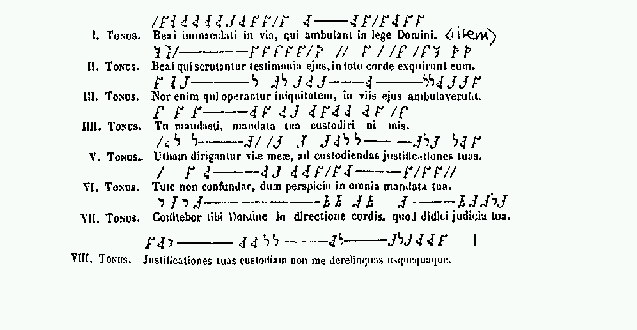 I. Tonus. Beati immaculati in via, qui ambulant in lege Domini. (item)
II. Tonus. Beati qui scrutantur testimonia ejus, in toto corde exquirunt eum.
III. Tonus. Non enim qui operantur iniquitatem, in viis ejus ambulaverunt.
IIII. Tonus. Tu mandasti, mandata tua custodiri ni mis.
V. Tonus. Utinam dirigantur viæ meæ, ad custodiendas justificationes tuas.
VI. Tonus. Tunc non confundar, dum perspicio in omnia mandata tua.
VII. Tonus. Confitebor tibi Domine in directione cordis, quod didici judicia tua.
VIII. Tonus. Justificationes tuas custodiam non me derelinquas usquequaque.